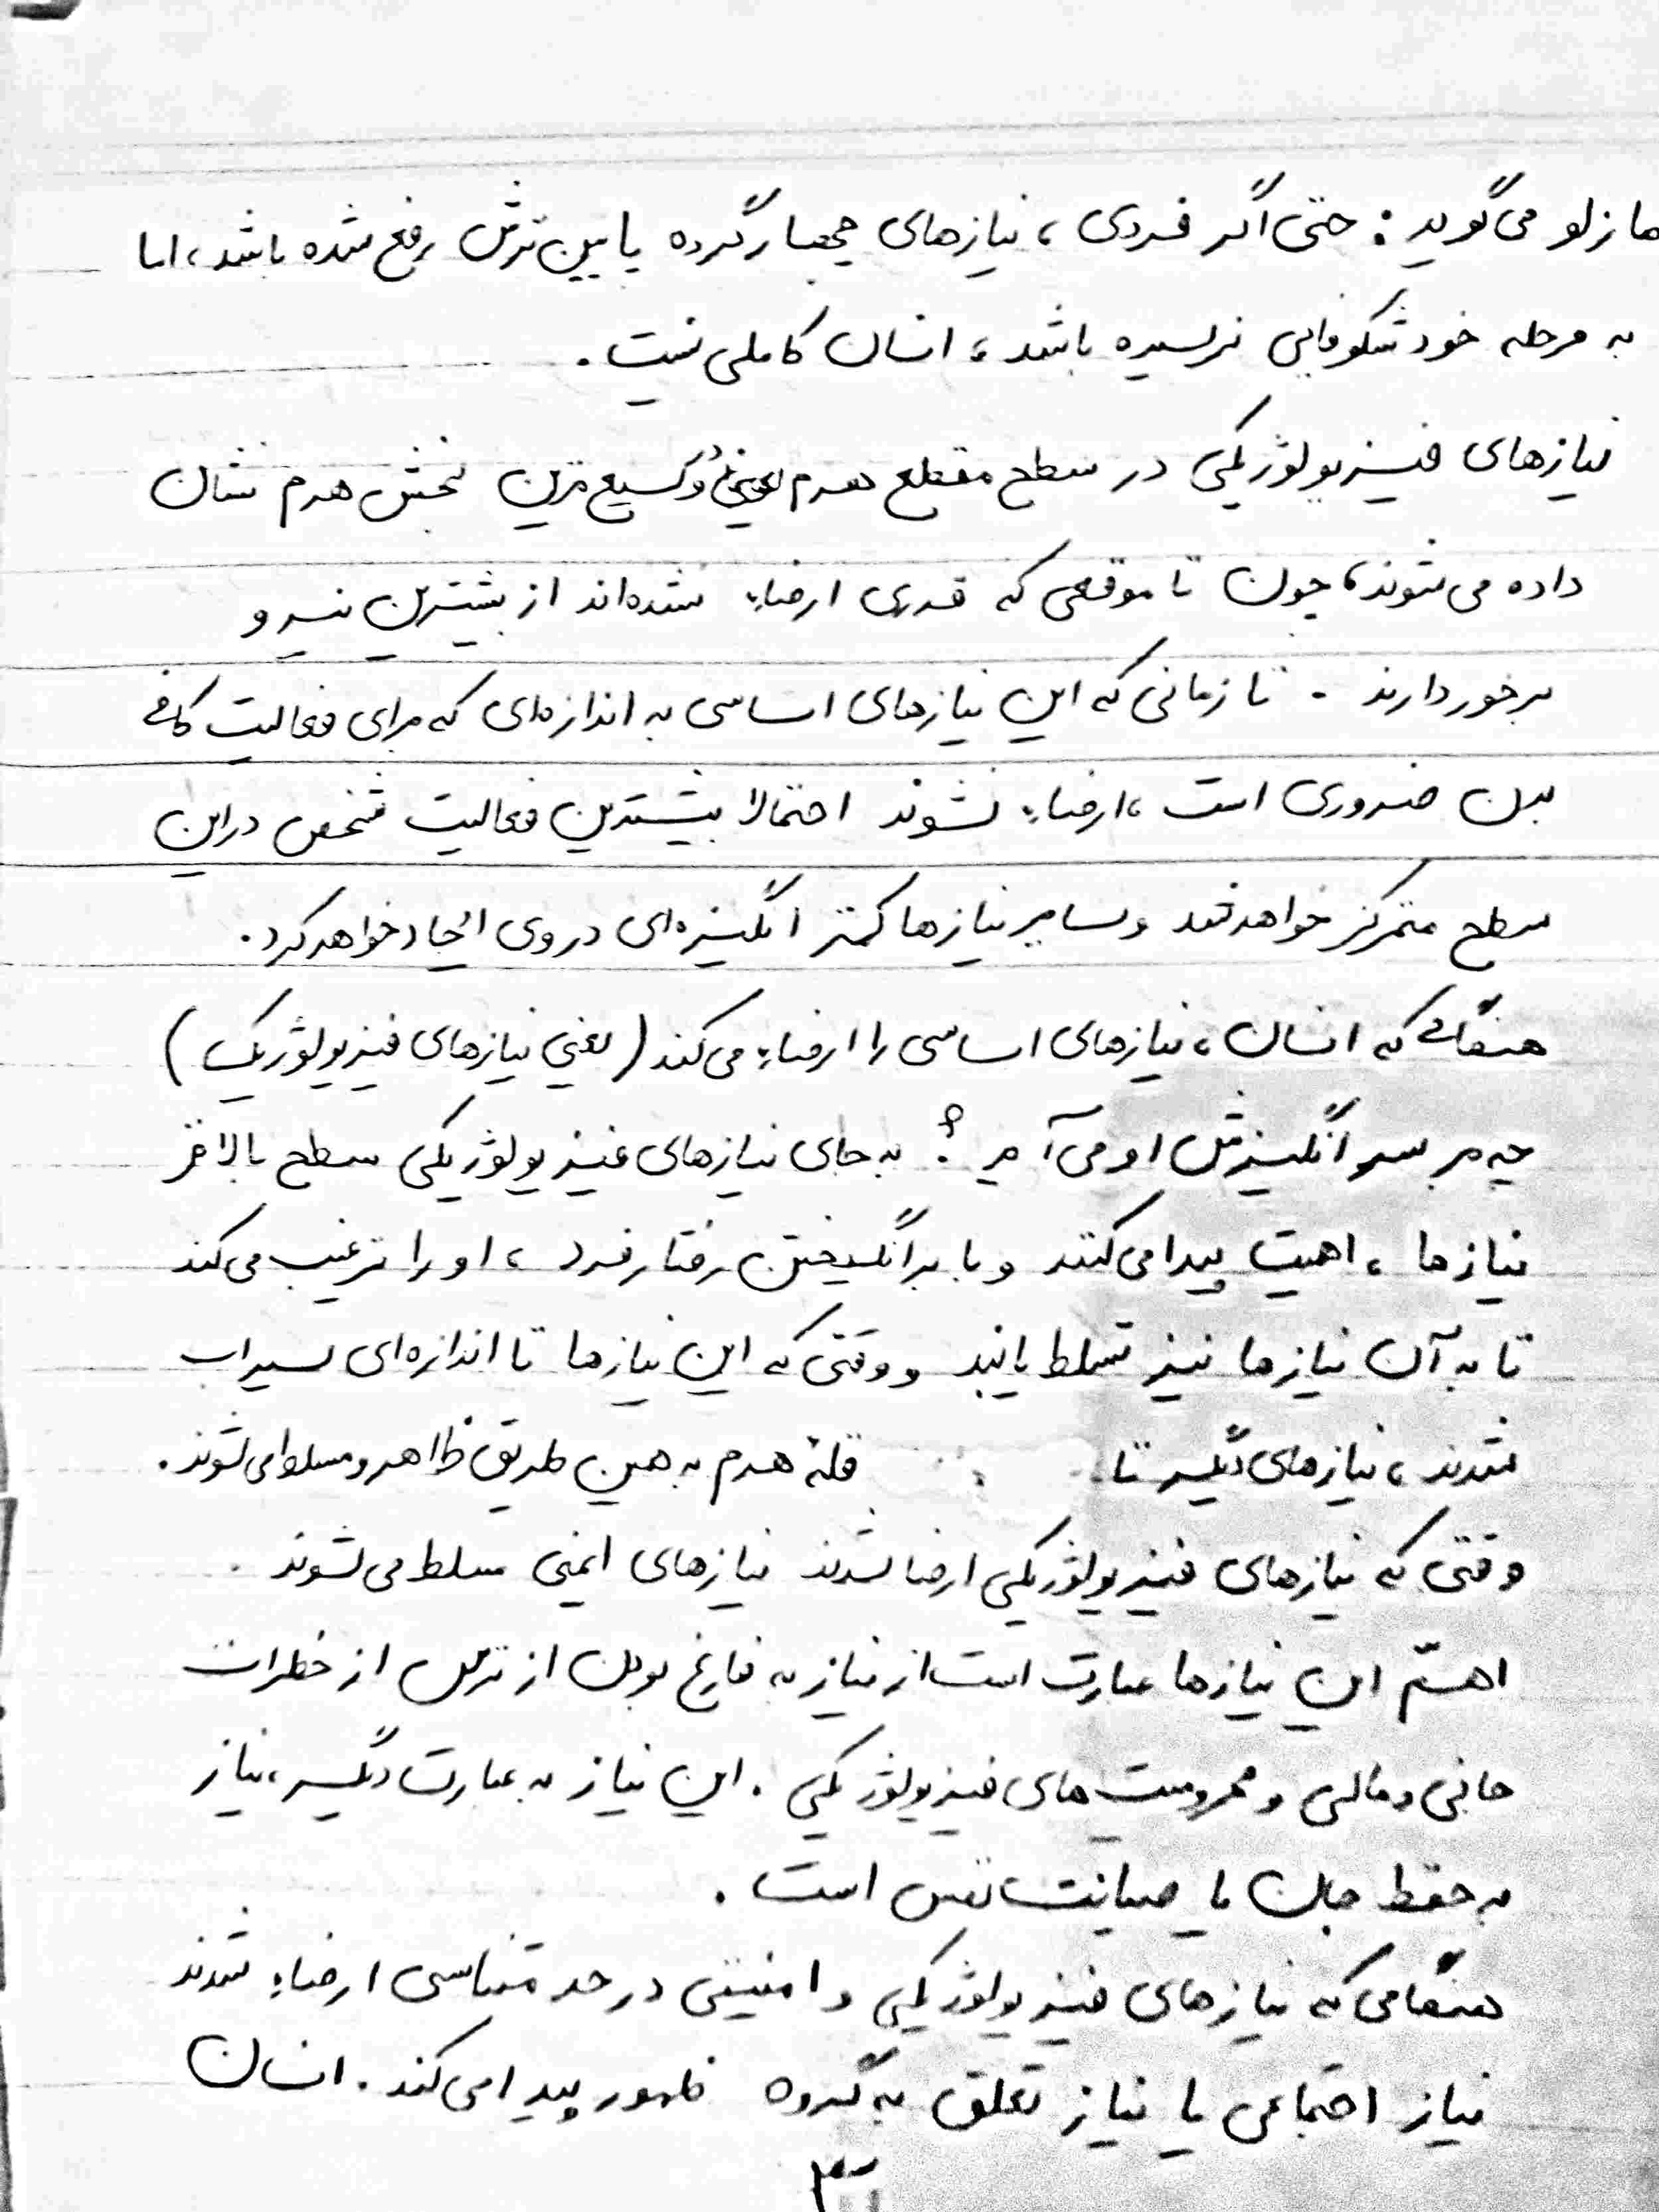 مازلو می‌گوید: حتی اگر فردی، نیازهای چهارگروه پایین‌ترش رفع شده باشد، اما
به مرحله خودشکوفایی نرسیده باشد، انسان کاملی نیست.
نیازهای فیزیولوژیکی در سطح مقطع هرم یعنی وسیع‌ترین بخش هرم نشان
داده می‌شوند، چون تا موقعی که قدری ارضاء نشده‌اند از بیشترین نیرو
برخوردارند. تا زمانی که این نیازهای اساسی به اندازه‌ای که برای فعالیت کافی
بدن ضروری است، ارضاء نشوند احتمالا بیشترین فعالیت شخص در این
سطح متمرکز خواهد شد و سایر نیازها کمتر انگیزه‌ای در وی ایجاد خواهد کرد.
هنگامی که انسان، نیازهای اساسی را ارضاء می‌کند (یعنی نیازهای فیزیولوژیک)
چه بر سر انگیزش او می‌آید؟ به جای نیازهای فیزیولوژیکی سطح بالاتر
نیازها، اهمیت پیدا می‌کنند و با برانگیختن رفتار فرد، او را ترغیب می‌کند
تا به آن نیازها نیز تسلط یابد و وقتی که این نیازها تا اندازه‌ای سیراب
شدند، نیازهای دیگر تا قلهٔ هرم به همین طریق ظاهر و مسلط می‌شوند.
وقتی که نیازهای فیزیولوژیکی ارضا شدند نیازهای ایمنی مسلط می‌شوند.
اهمّ این نیازها عبارت است از نیاز به فارغ بودن از ترس از خطرات
جانی و مالی و محرومیت‌های فیزیولوژیکی. این نیاز به عبارت دیگر، نیاز
به حفظ جان یا صیانت نفس است.
هنگامی که نیازهای فیزیولوژیکی و امنیتی در حد متناسبی ارضاء شدند
نیاز اجتماعی یا نیاز تعلق به گروه ظهور پیدا می‌کند. انسان
۳